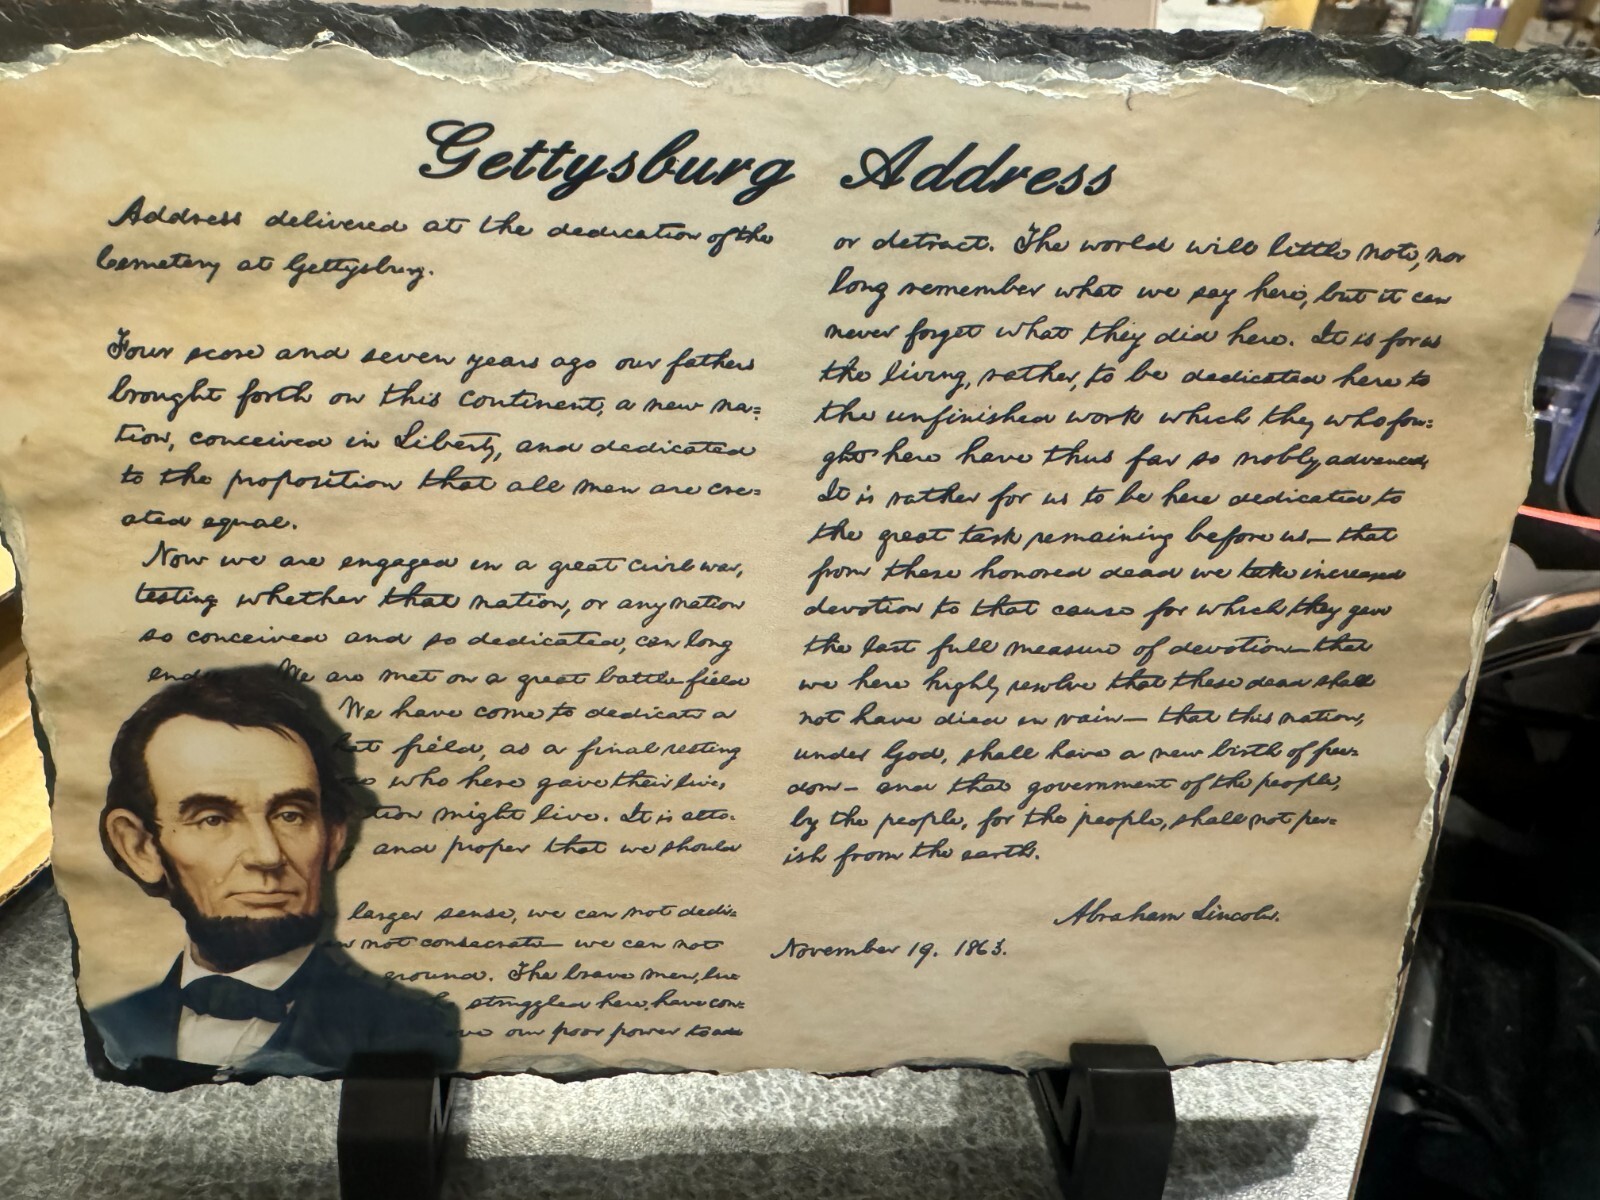 Gettysburg Address
Address delivered at the dedication of the
Cemetery at Gettysburg.
Four score and seven years ago our fathers
brought forth on this continent, a new na=
tion, conceived in Liberty, and dedicated
to the proposition that all men are cre=
ated equal.
Now we are engaged in a great civil war,
testing whether that nation, or any nation
so conceived and so dedicated, can long
We are met on a great battle-field
We have come to dedicate a
field, as a final resting
who here gave their lives,
might live. It is alto=
and proper that we should
larger sense, we can not dedi=
not consecrate— we can not
ground. The brave men, liv=
struggled here, have con=
our poor power to add
or detract. The world will little note, nor
long remember what we say here, but it can
never forget what they did here. It is for us
the living, rather, to be dedicated here to
the unfinished work which they who fou=
ght here have thus far so nobly advanced.
It is rather for us to be here dedicated to
the great task remaining before us— that
from these honored dead we take increased
devotion to that cause for which they gave
the last full measure of devotion— that
we here highly resolve that these dead shall
not have died in vain— that this nation,
under God, shall have a new birth of free=
dom— and that government of the people,
by the people, for the people, shall not per=
ish from the earth.
Abraham Lincoln.
November 19. 1863.